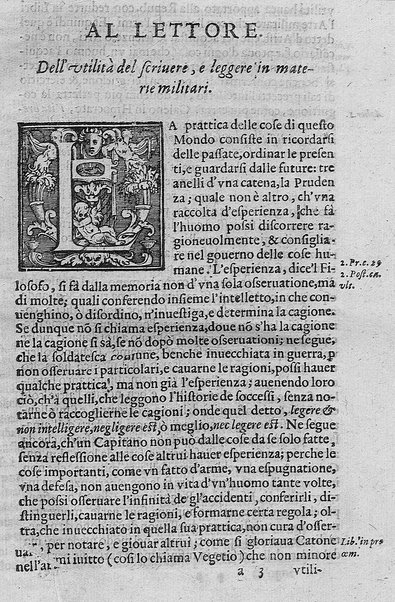 AL LETTORE.
Dell'vtilità del scriuere, e leggere in mate-
rie militari.
LA prattica delle cose di questo
Mondo consiste in ricordarsi
delle passate, ordinar le presen
ti, e guardarsi dalle future: tre
anelli d'vna catena, la Pruden
za; quale non è altro, ch'vna
raccolta d'esperienza, che fà
l'huomo possi discorrere ra-
gioneuolmente, & consiglia-
re nel gouerno delle cose hu-
mane. L'esperienza, dice'l Fi-
2. Pr. c. 29
2. Post. ca.
vlt.
losofo, si fà dalla memoria non d'vna sola osseruatione, ma
di molte; quali conferendo insieme l'intelletto, in che con-
uenghino, ò disordino, n'inuestiga, e determina la cagione.
Se dunque nõ si chiama esperienza, doue nõ s'ha la cagione
ne la cagione si sà, se nõ dopò molte osseruationi; ne segue,
che la soldatesca comune, benche inuecchiata in guerra, p
non osseruare i particolari, e cauarne le ragioni, possi hauer
qualche prattica, ma non già l'esperienza; auenendo loro
ciò, ch'à quelli, che leggono l'historie de soccessi, senza no-
tarne ò raccoglierne le cagioni; onde quel detto, legere &
non intelligere, negligere est, ò meglio, nec legere est. Ne segue
ancora, ch'vn Capitano non può dalle cose da se solo fatte,
senza reflessione alle cose altrui hauer esperienza; perche le
cose importanti, come vn fatto d'arme, vna espugnatione,
vna defesa, non auengono in vita d'vn'huomo tante volte,
che possi osseruare l'infinità de gl'accidenti, conferirli, di-
stinguerli, cauarne le ragioni, e formarne certa regola; ol-
tra, che inuecchiato in quella sua prattica, non cura d'osser-
uar, per notare, e giouar altrui; come si gloriaua Catone
Lib. in pro
œm.
nell'ar mi iuitto (così lo chiama Vegetio) che non minore
a 3 vtili-